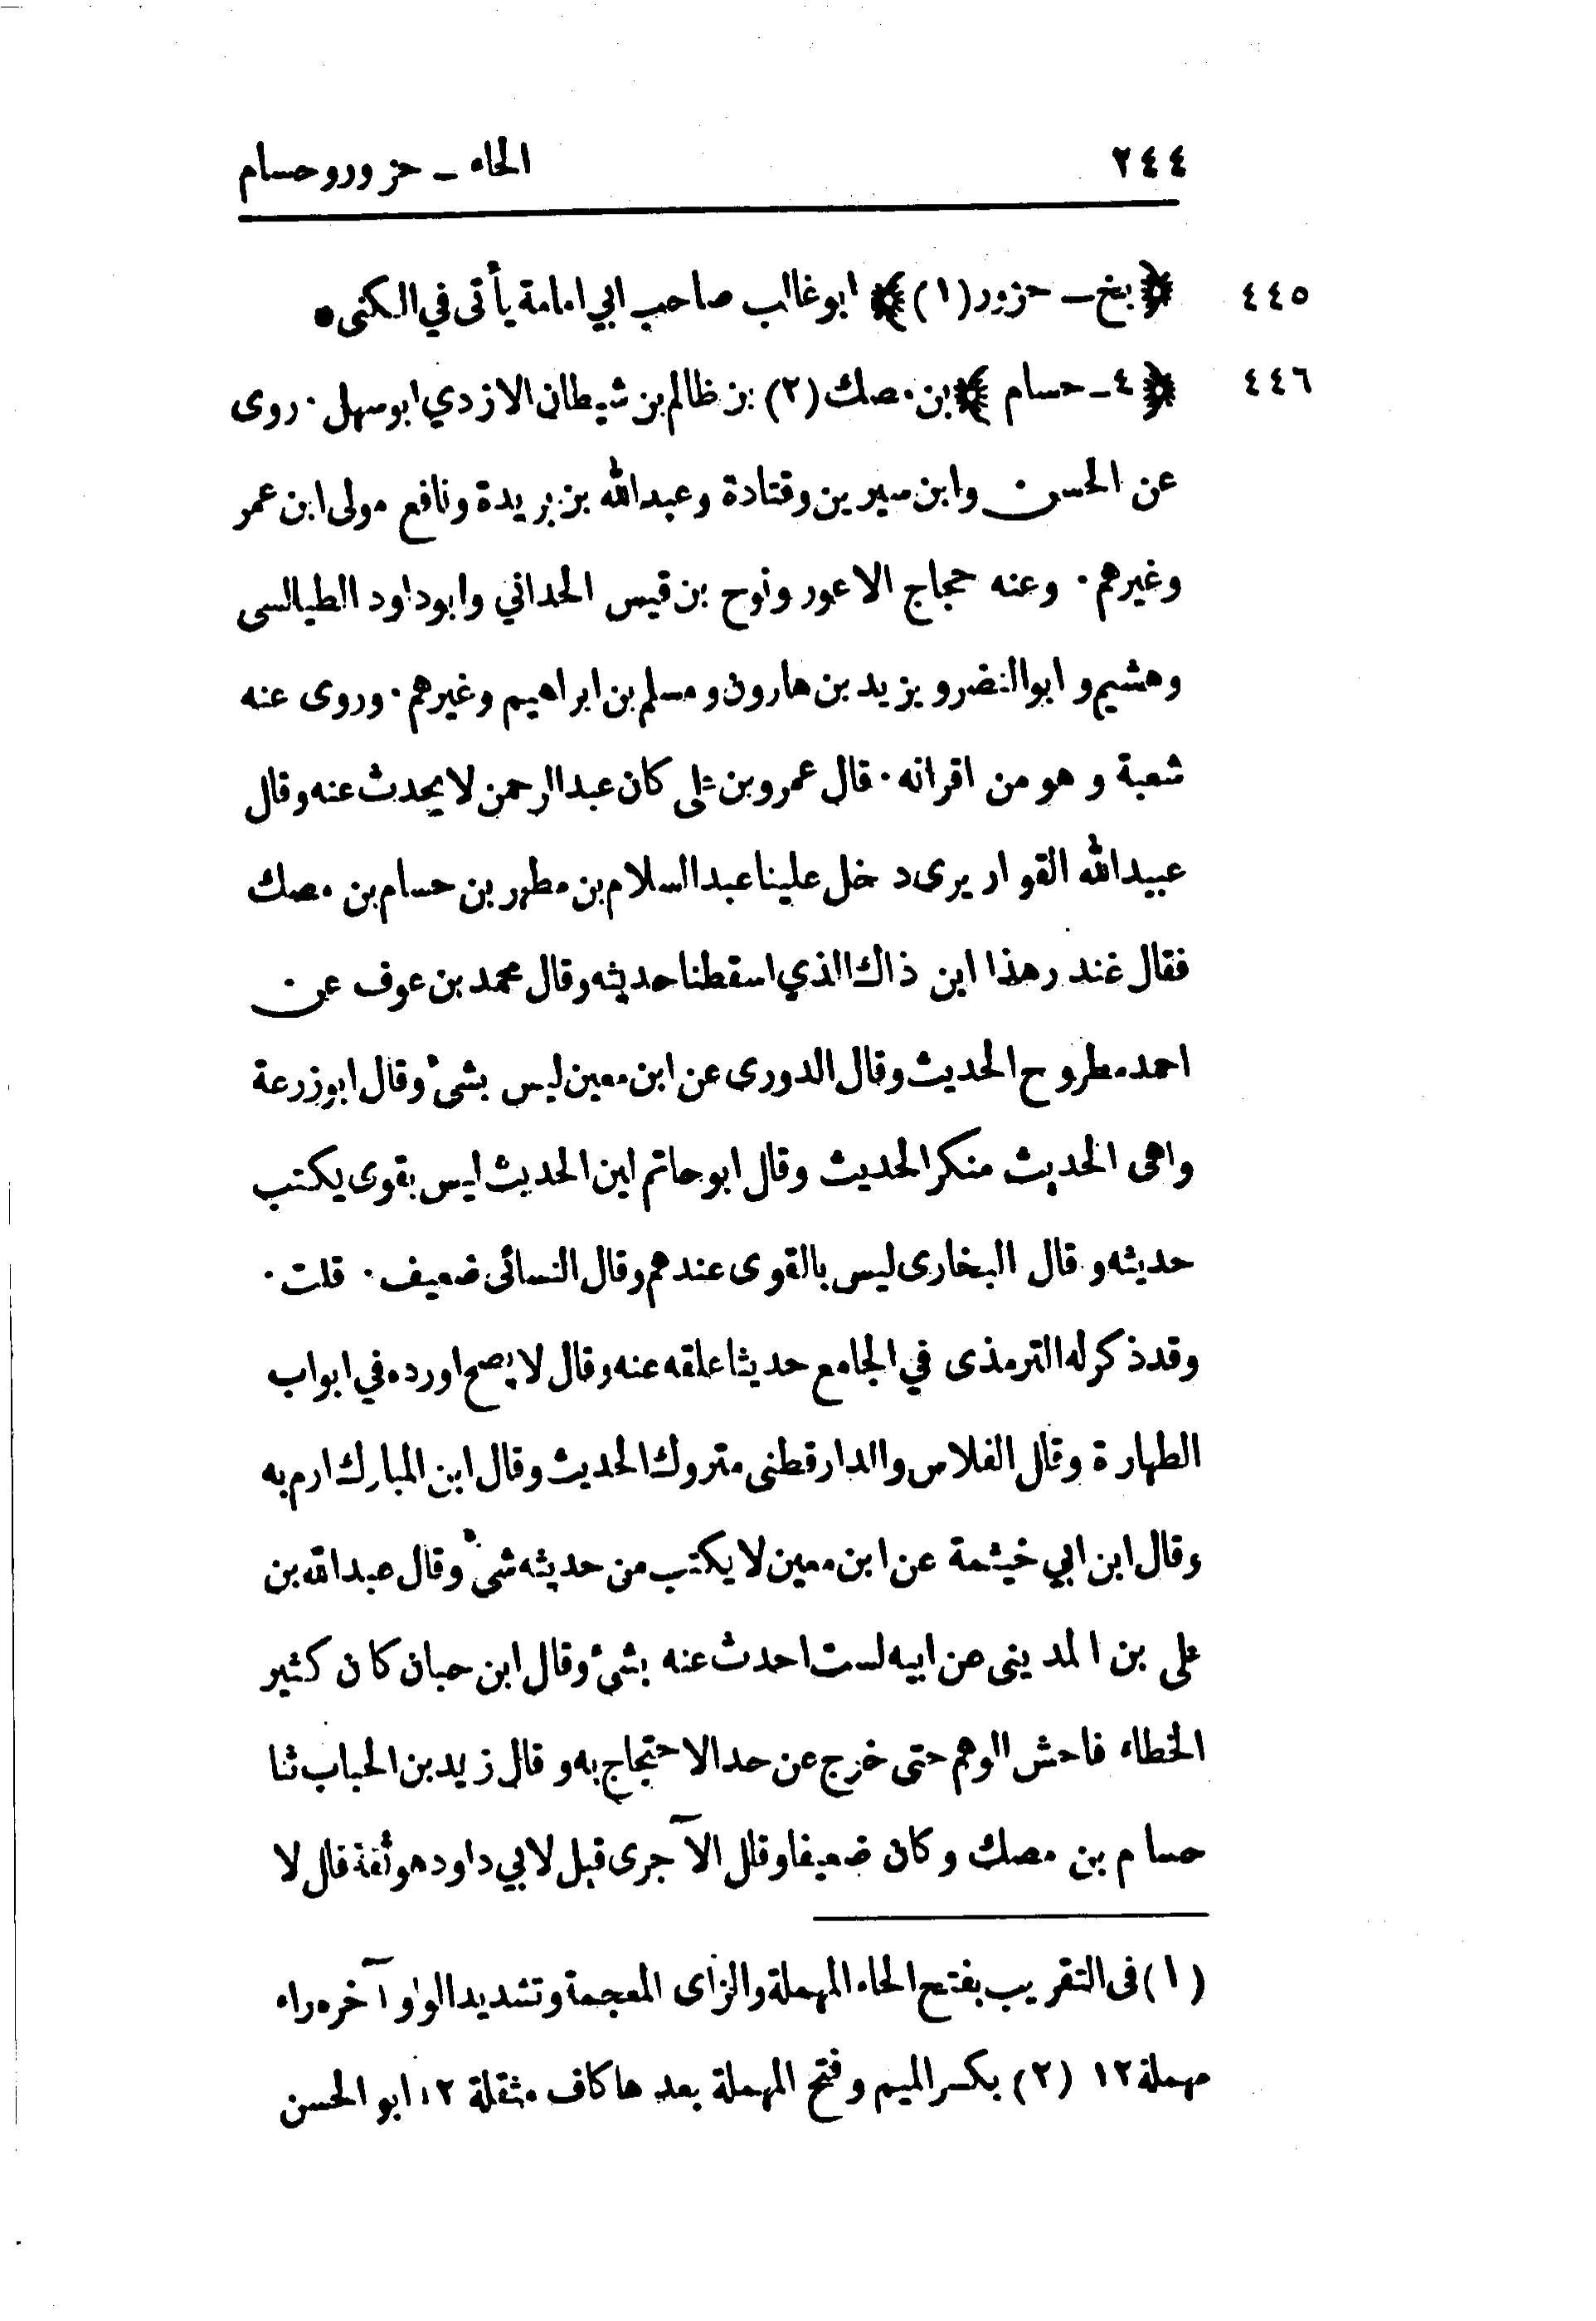 ٢٤٤ الحاء - حزور وحسام
٤٤٥ ﴿ بخ - حزور (١) ﴾ ابو غالب صاحب ابي امامة يأتى في الكنى •
٤٤٦ ﴿ ٤ - حسام ﴾ بن مصك (٢) بن ظالم بن شيطان الازدي ابو سهل. روى
عن الحسن وابن سيرين وقتادة وعبدالله بن بريدة ونافع مولى ابن عمر
وغيرهم. وعنه حجاج الاعور ونوح بن قيس الحداني وابو داود الطيالسى
وهشيم و ابو النضر و يزيد بن هارون و مسلم بن ابراهيم وغيرهم. وروى عنه
شعبة و هو من اقرانه. قال عمرو بن على كان عبدالرحمن لا يحدث عنه وقال
عبيدالله القواريرى دخل علينا عبد السلام بن مطهر بن حسام بن مصك
فقال غندر هذا ابن ذاك الذي اسقطنا حديثه وقال محمد بن عوف عن
احمد مطروح الحديث وقال الدورى عن ابن معين ليس بشئ وقال ابو زرعة
واهى الحديث منكر الحديث وقال ابو حاتم لين الحديث ليس بقوى يكتب
حديثه و قال البخارى ليس بالقوى عندهم وقال النسائى ضعيف. قلت.
وقد ذكر له الترمذى في الجامع حديثا علقه عنه وقال لا يصح اورده في ابواب
الطهارة وقال الفلاس والدارقطنى متروك الحديث وقال ابن المبارك ارم به
وقال ابن ابي خيثمة عن ابن معين لا يكتب من حديثه شئ وقال عبدالله بن
على بن المدينى عن ابيه لست احدث عنه بشئ وقال ابن حبان كان كثير
الخطاء فاحش الوهم حتى خرج عن حد الاحتجاج به و قال زيد بن الحباب ثنا
حسام بن مصك وكان ضعيفا وقال الآجرى قيل لابي داود هو ثقة قال لا
(١) فى التقريب بفتح الحاء المهملة والزاى المعجمة وتشديد الواو آخره راء
مهملة ١٢ (٢) بكسر الميم وفتح المهملة بعدها كاف مثقلة ١٢ ابو الحسن